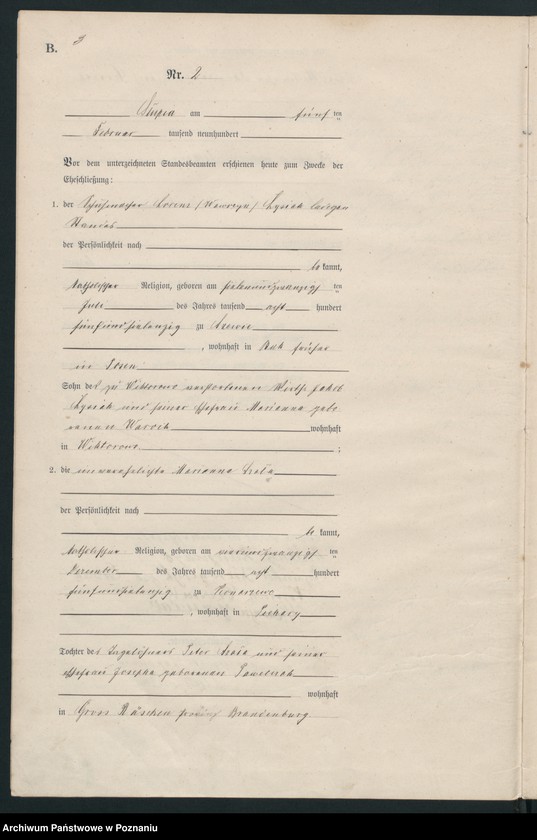 B. 3
Nr. 2
Slupia am fünften
Februar tausend neunhundert
Vor dem unterzeichneten Standesbeamten erschienen heute zum Zwecke der
Eheschließung:
1. der Schuhmacher Lorenz (Wawrzyn) Lysiak ledigen
Standes
der Persönlichkeit nach
be kannt,
katholischer Religion, geboren am siebenundzwanzigsten
Juli des Jahres tausend acht hundert
fünfundsiebenzig zu
, wohnhaft in Buk früher
in Posen
Sohn des zu Wiktorowo verstorbenen Wirth
Lysiak und seiner Ehefrau Marianna gebo
renen wohnhaft
in Wiktorowo ;
2. die unverehelichte Marianna
der Persönlichkeit nach
be kannt,
katholischer Religion, geboren am vierundzwanzigsten
Dezember des Jahres tausend acht hundert
fünfundsiebenzig zu Konarzewo
, wohnhaft in
Tochter des Tagelöhners Peter und seiner
Ehefrau Josepha geborenen Pawelczak
wohnhaft
in Gross Räschen Provinz Brandenburg
Archiwum Państwowe w Poznaniu